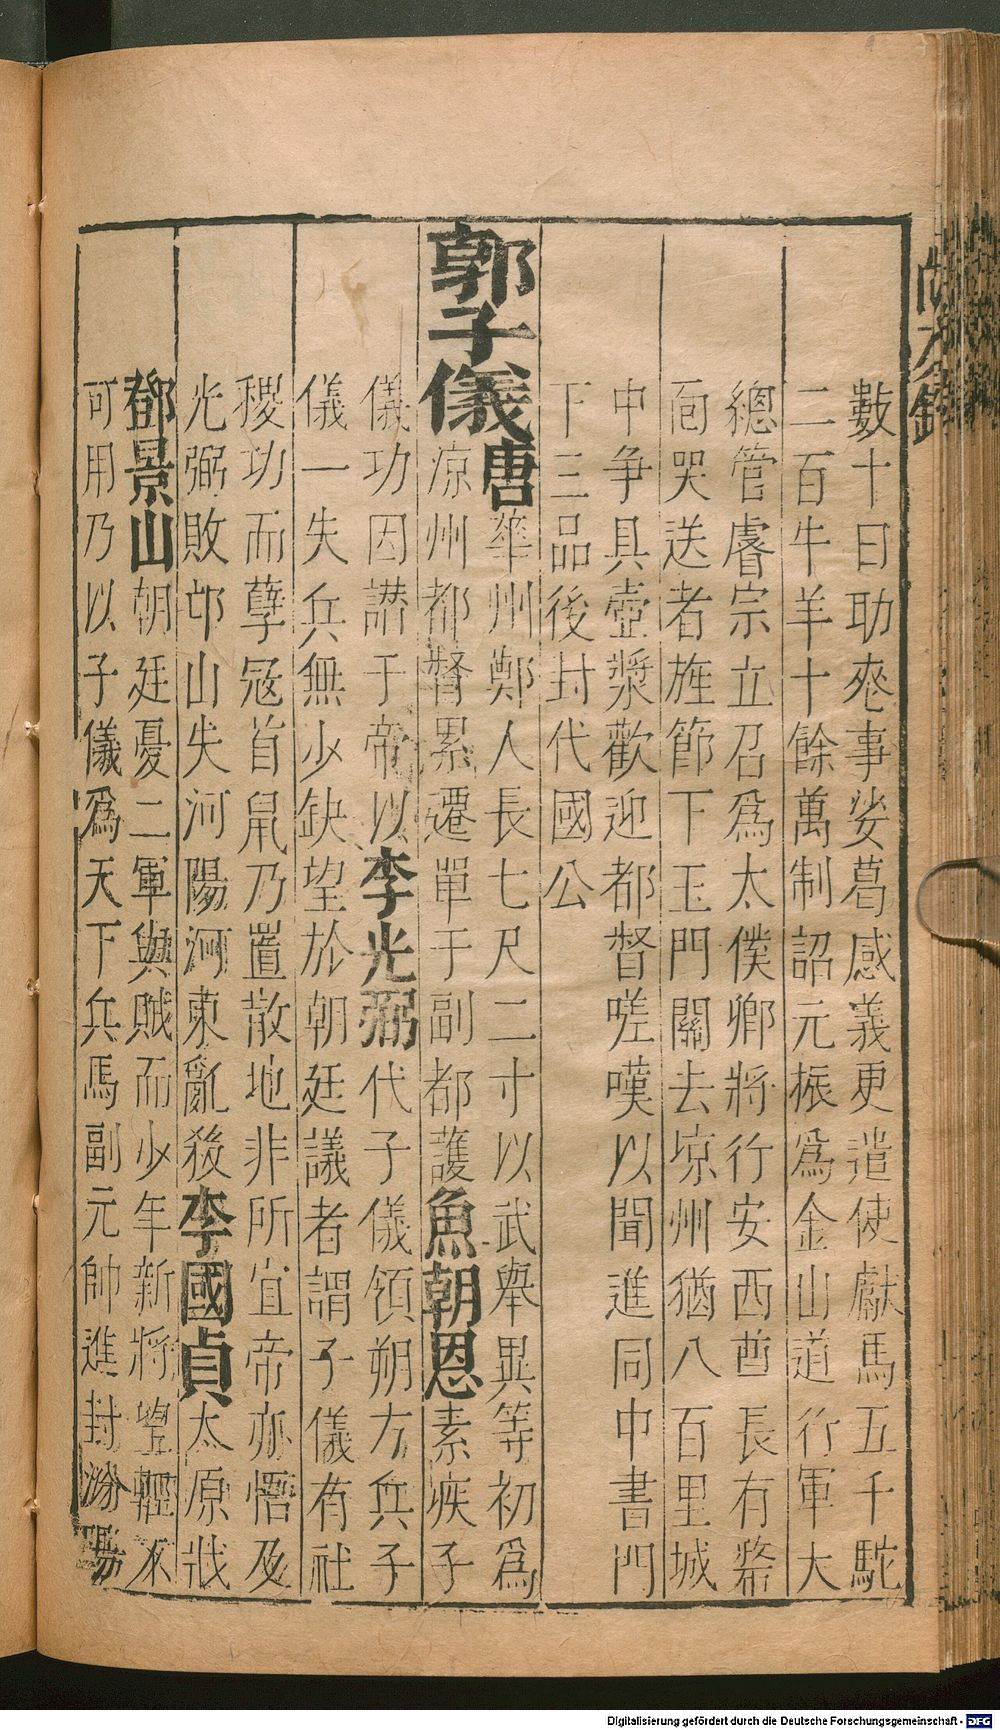 數十日助䘮事娑葛感義更遣使獻馬五千駝
二百牛羊十餘萬制詔元振爲金山道行軍大
總管睿宗立召爲太僕卿將行安西酋長有嫠
面哭送者旌節下玉門關去凉州猶八百里城
中争具壺漿歡迎都督嗟嘆以聞進同中書門
下三品後封代國公
郭子儀唐華州鄭人長七尺二寸以武舉異等初爲
凉州都督累遷單于副都護魚朝恩素疾子
儀功因譖于帝以李光弼代子儀領朔方兵子
儀一失兵無少缺望於朝廷議者謂子儀有社
稷功而孽冦首鼠乃置散地非所宜帝亦悟及
光弼敗邙山失河陽河東亂殺李國貞太原戕
鄧景山朝廷憂二軍與賊而少年新將望輕不
可用乃以子儀爲天下兵馬副元帥進封汾陽
Digitalisierung gefördert durch die Deutsche Forschungsgemeinschaft - DFG